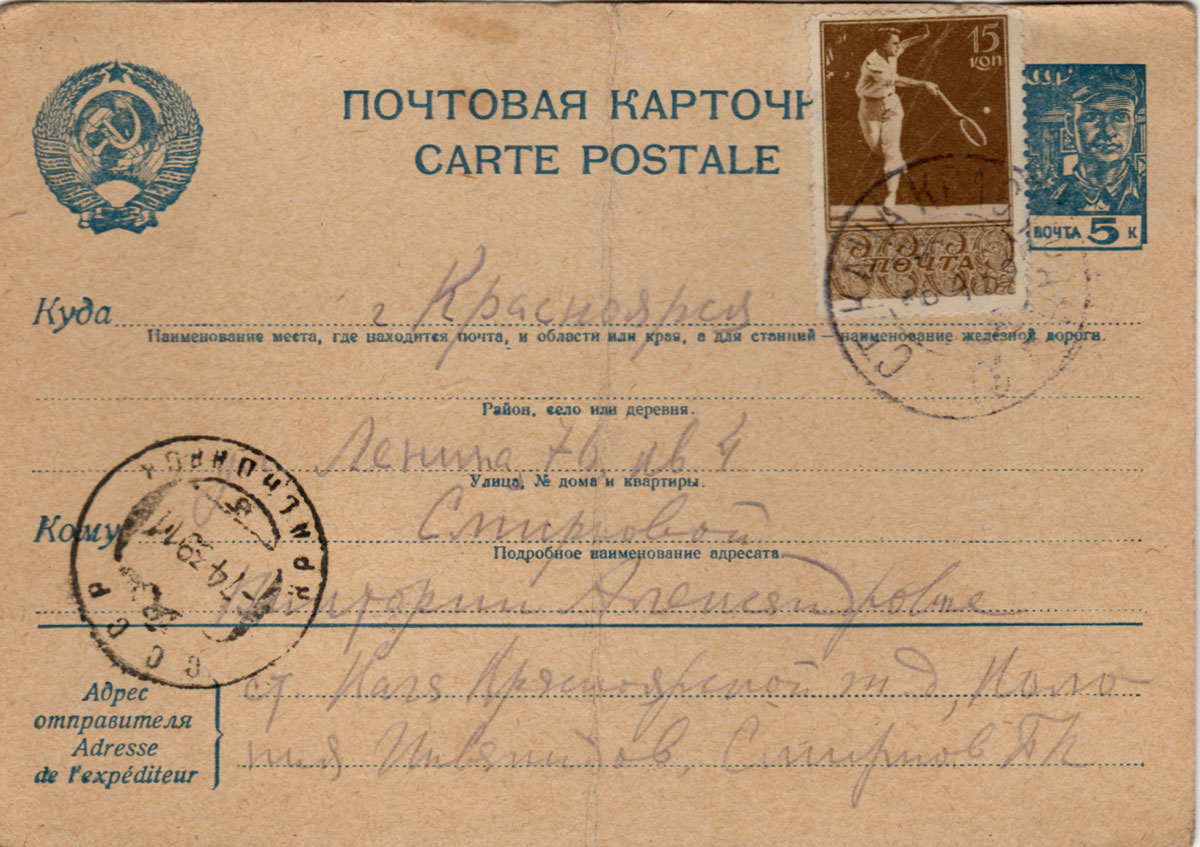 ПОЧТОВАЯ КАРТОЧК
CARTE POSTALE
15
коп
ПОЧТА
СССР
ПОЧТА 5 К
Куда г Красноярск
Наименование места, где находится почта, и области или края, а для станций — наименование железной дороги.
Район, село или деревня.
Ленина, 76, кв 4
Улица, № дома и квартиры.
Кому Смирновой
Подробное наименование адресата
Виктории Александровне
КРАСНОЯРСК
СССР
Адрес отправителя
Adresse de l'expéditeur
ст. Кача Красноярской ж.д, Коло
ния Инвалидов, Смирнов